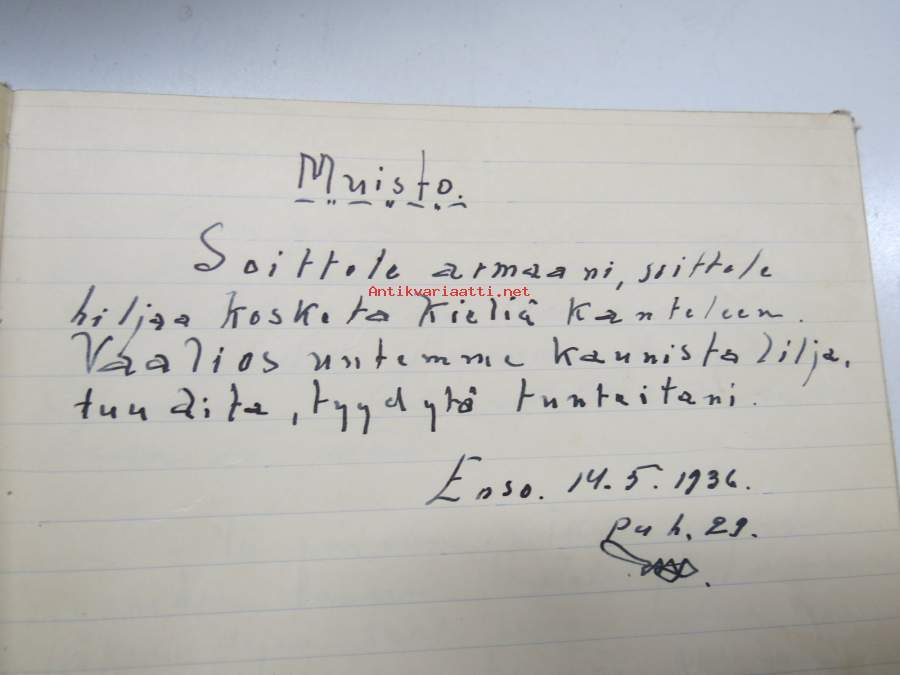 Muisto.
Soittele armaani, soittele
Antikvariaatti.net
hiljaa kosketa kieliä kanteleen.
Vaalios untemme kaunista lilja,
tuudita, tyydytä tunteitani.
Enso. 14.5.1936.
puh. 29.